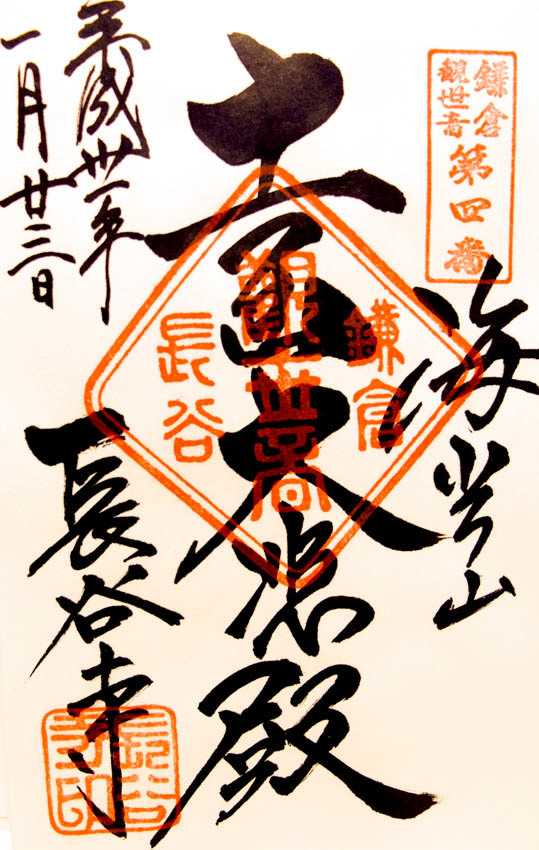 鎌倉
観世音
第四番
海光山
十一面大悲殿
鎌倉
觀世音
長谷
長谷寺
長谷寺印
平成卅一年
一月廿三日